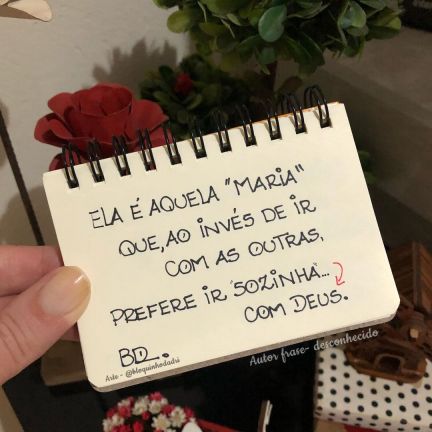 ELA É AQUELA "MARIA"
QUE, AO INVÉS DE IR
COM AS OUTRAS,
PREFERE IR "SOZINHA"...
COM DEUS.
BD_.
Arte - @bloquinhodadri
Autor frase- desconhecido